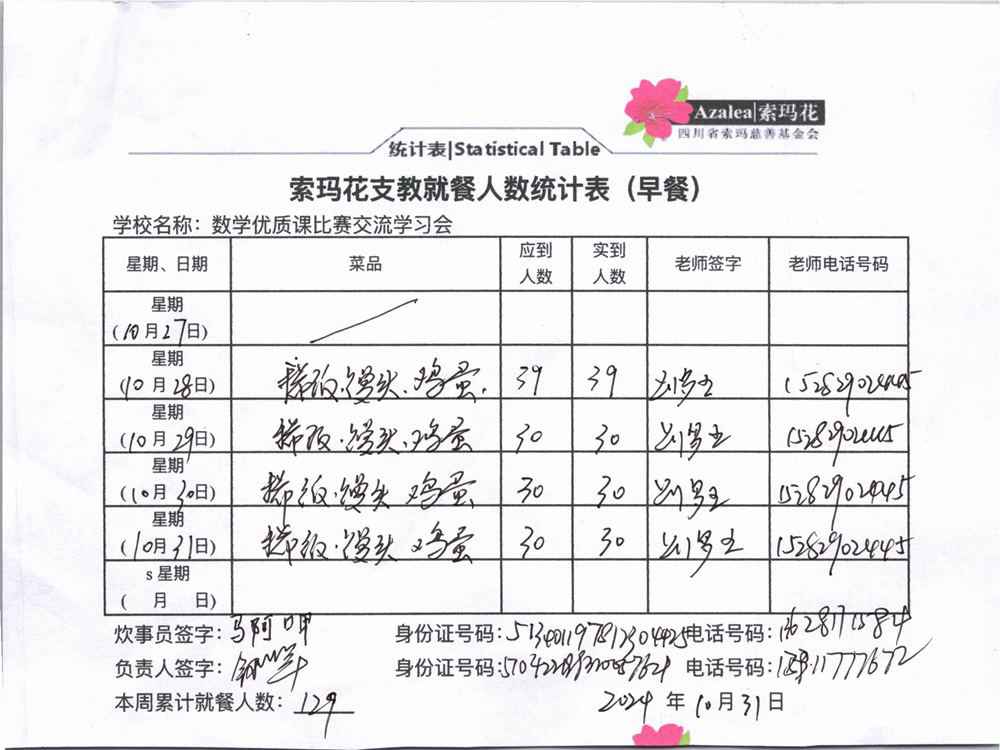 Azalea|索玛花
四川省索玛慈善基金会
统计表|Statistical Table
索玛花支教就餐人数统计表（早餐）
学校名称：数学优质课比赛交流学习会
星期、日期 菜品 应到人数 实到人数 老师签字 老师电话号码
星期
(10月27日)
星期
(10月28日) 稀饭、馒头、鸡蛋. 39 39 15282902445
星期
(10月29日) 稀饭、馒头、鸡蛋 30 30
星期
(10月30日) 稀饭、馒头 鸡蛋 30 30 15282902445
星期
(10月31日) 稀饭、馒头 鸡蛋 30 30 15282902445
s 星期
( 月 日)
炊事员签字：马阿 身份证号码： 电话号码：
负责人签字： 身份证号码: 电话号码：
本周累计就餐人数：129 2024 年 10月 31日